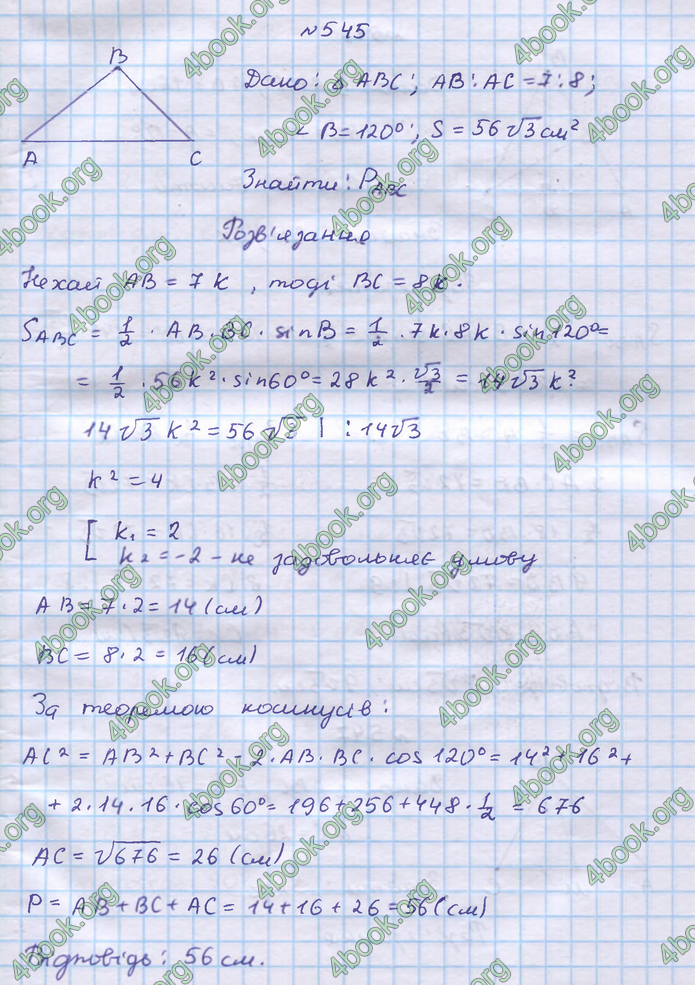 №545
B
A
C
Дано: Δ ABC; AB : AC = 7 : 8;
∠ B = 120°; S = 56√3 см²
Знайти: P_ABC
Розв'язання
Нехай AB = 7k, тоді BC = 8k.
S_ABC = 1/2 · AB · BC · sin B = 1/2 · 7k · 8k · sin 120° =
= 1/2 · 56k² · sin 60° = 28k² · √3/2 = 14√3 k².
14√3 k² = 56√3 | : 14√3
k² = 4
[ k₁ = 2
k₂ = -2 - не задовольняє умову
AB = 7 · 2 = 14 (см)
BC = 8 · 2 = 16 (см)
За теоремою косинусів:
AC² = AB² + BC² - 2 · AB · BC · cos 120° = 14² + 16² +
+ 2 · 14 · 16 · cos 60° = 196 + 256 + 448 · 1/2 = 676
AC = √676 = 26 (см)
P = AB + BC + AC = 14 + 16 + 26 = 56 (см)
Відповідь: 56 см.
4book.org